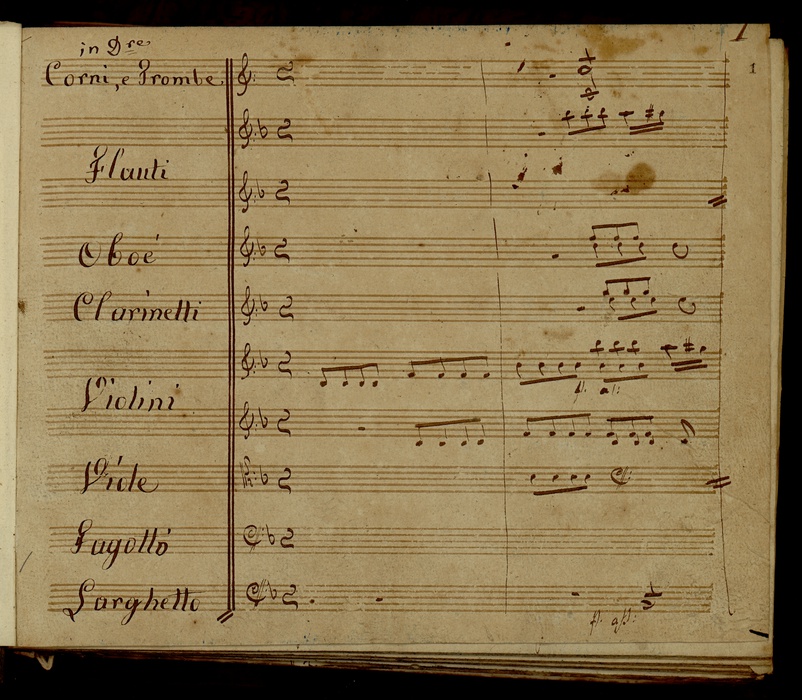 in Dre
Corni, e Trombe
1
1
Flauti
Oboé
Clarinetti
Violini
fs. as:
Viole
Fagotto
Larghetto